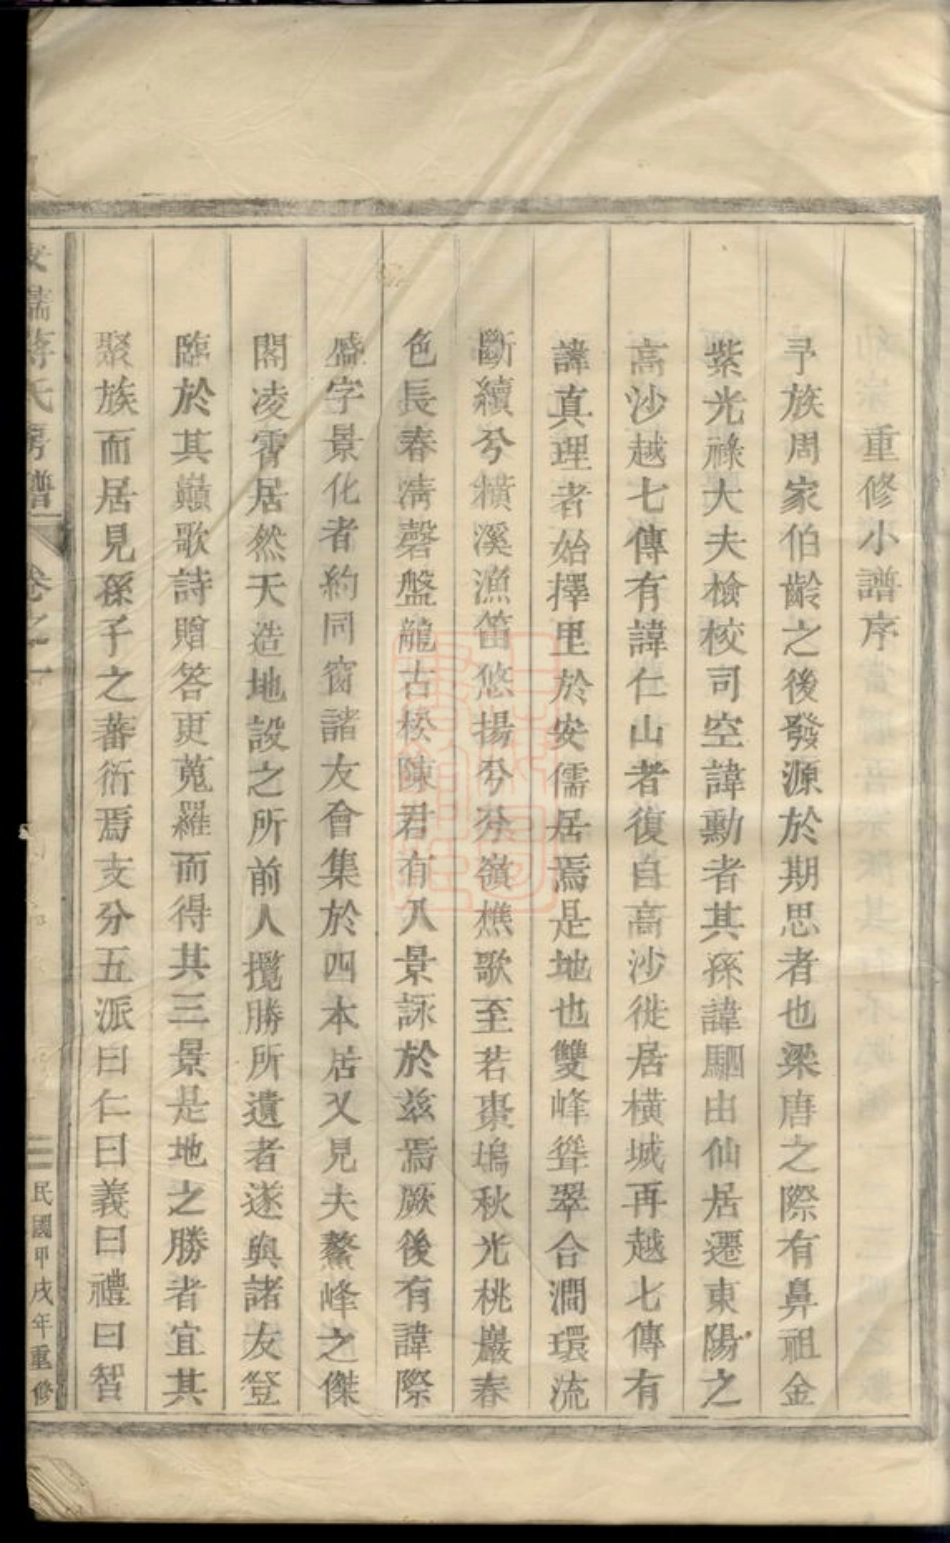 重修小譜序
予族周家伯齡之後發源於期思者也梁唐之際有鼻祖金
紫光祿大夫檢校司空諱勳者其孫諱駰由仙居遷東陽之
高沙越七傳有諱仁山者復自高沙徙居橫城再越七傳有
諱真理者始擇里於安儒居焉是地也雙峰聳翠合澗環流
斷續兮橫溪漁笛悠揚兮分嶺樵歌至若棗塢秋光桃巖春
色長春淸磬盤龍古松陳君有八景詠於兹焉厥後有諱際
盛字景化者約同窗諸友會集於四本居又見夫鰲峰之傑
閣凌霄居然天造地設之所前人攬勝所遺者遂與諸友登
臨於其巔歌詩贈答更蒐羅而得其三景是地之勝者宜其
聚族而居見孫子之蕃衍焉支分五派曰仁曰義曰禮曰智
安儒蔣氏房譜 卷之一
民國甲戌年重修